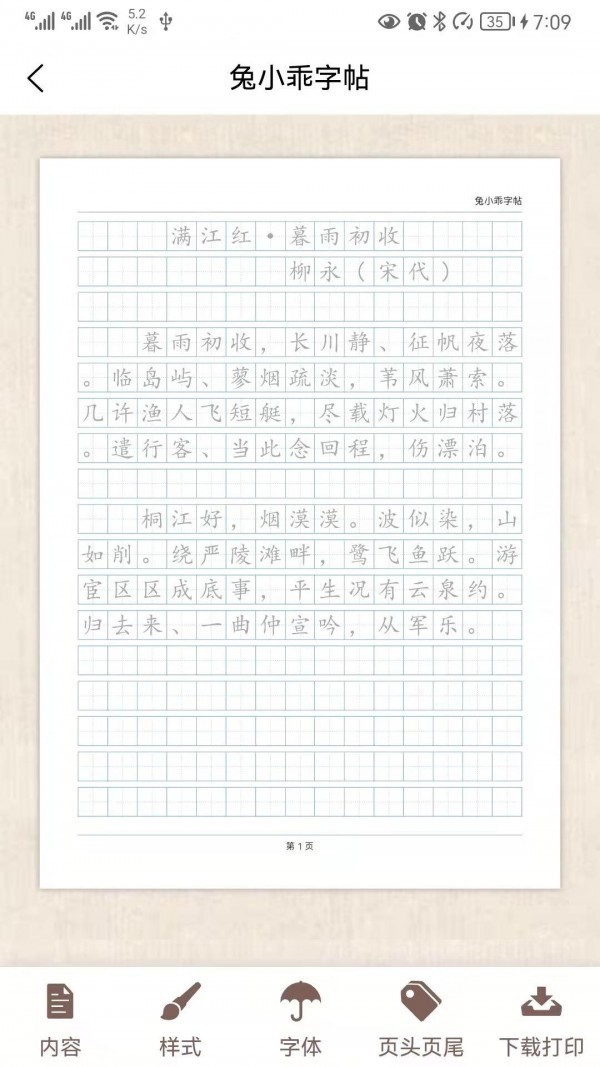 4G 4G 5.2 K/s 35 7:09
兔小乖字帖
兔小乖字帖
满江红•暮雨初收
柳永（宋代）
暮雨初收，长川静、征帆夜落
。临岛屿、蓼烟疏淡，苇风萧索。
几许渔人飞短艇，尽载灯火归村落
。遣行客、当此念回程，伤漂泊。
桐江好，烟漠漠。波似染，山
如削。绕严陵滩畔，鹭飞鱼跃。游
宦区区成底事，平生况有云泉约。
归去来、一曲仲宣吟，从军乐。
第 1 页
内容 样式 字体 页头页尾 下载打印